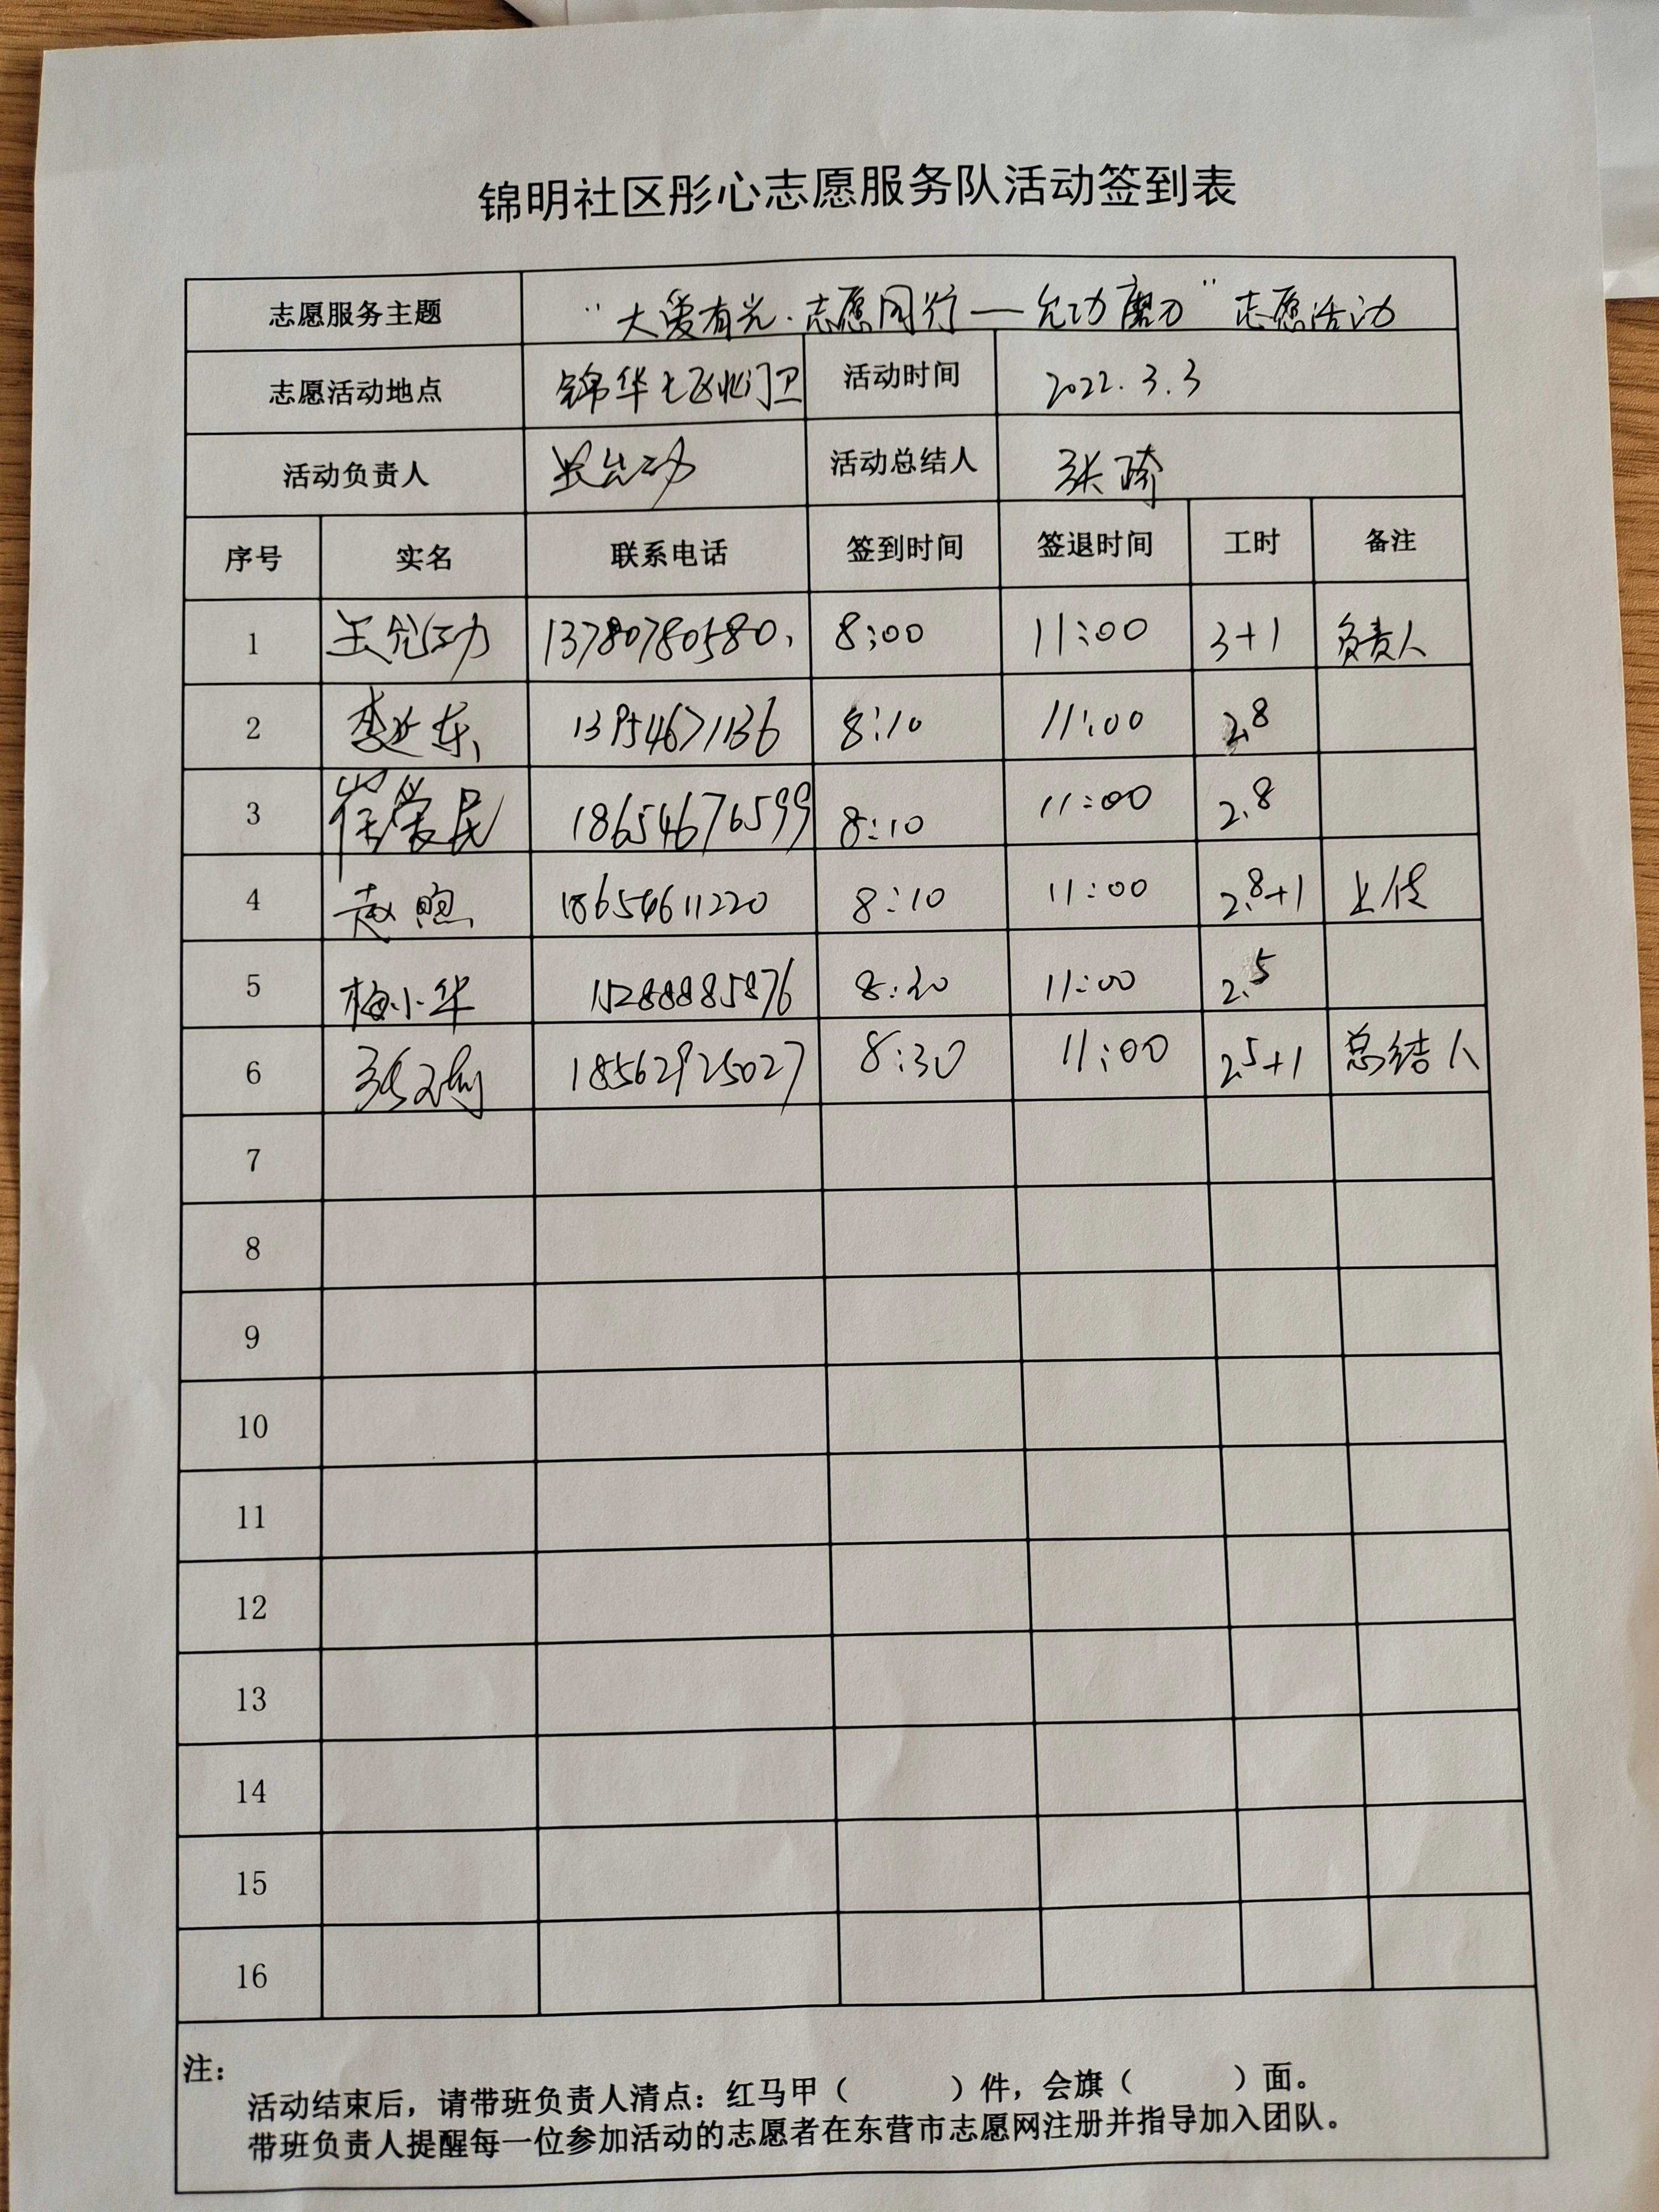 锦明社区彤心志愿服务队活动签到表
志愿服务主题 “大爱有光·志愿同行——允功磨刀”志愿活动
志愿活动地点 锦华七区北门卫 活动时间 2022.3.3
活动负责人 王允功 活动总结人 张琦
序号 实名 联系电话 签到时间 签退时间 工时 备注
1 王允功 13780780580. 8:00 11:00 3+1 负责人
2 李延东 13954671136 8:10 11:00 2.8
3 崔爱民 18654676599 8:10 11:00 2.8
4 赵 18654611220 8:10 11:00 2.8+1 上传
5 梅小华 15288885876 8:30 11:00 2.5
6 张 18562925027 8:30 11:00 2.5+1 总结人
7
8
9
10
11
12
13
14
15
16
注：
活动结束后，请带班负责人清点：红马甲（ ）件，会旗（ ）面。
带班负责人提醒每一位参加活动的志愿者在东营市志愿网注册并指导加入团队。